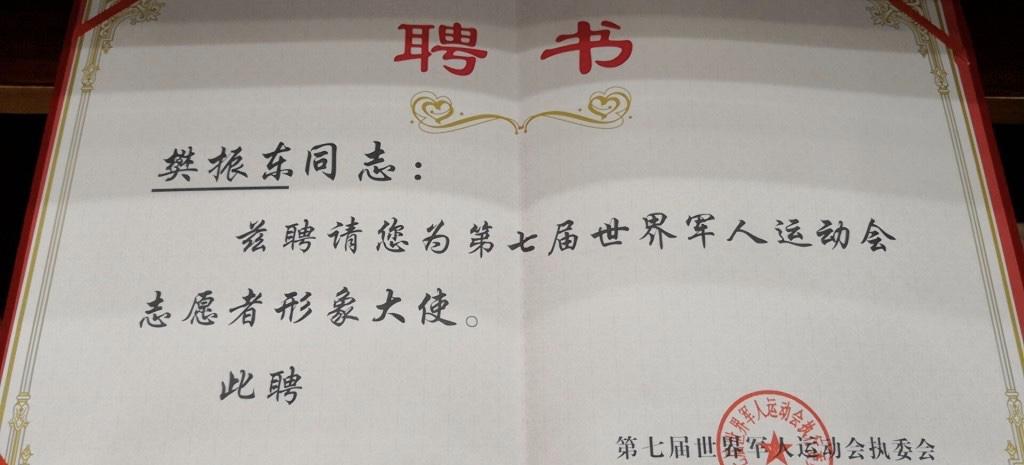 聘书
樊振东同志：
兹聘请您为第七届世界军人运动会
志愿者形象大使。
此聘
第七届世界军人运动会执委会